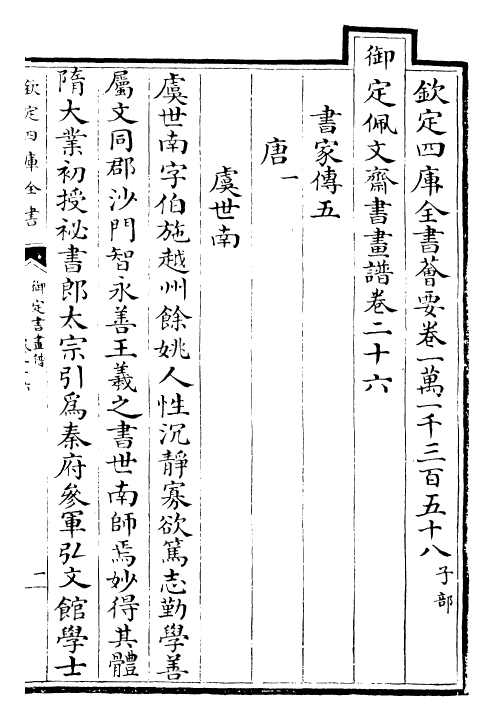 欽定四庫全書薈要卷一萬一千三百五十八 子部
御定佩文齋書畫譜卷二十六
書家傳五
唐一
虞世南
虞世南字伯施越州餘姚人性沉靜寡欲篤志勤學善
屬文同郡沙門智永善王羲之書世南師焉妙得其體
隋大業初授祕書郎太宗引爲秦府參軍弘文館學士
欽定四庫全書
御定書畫譜